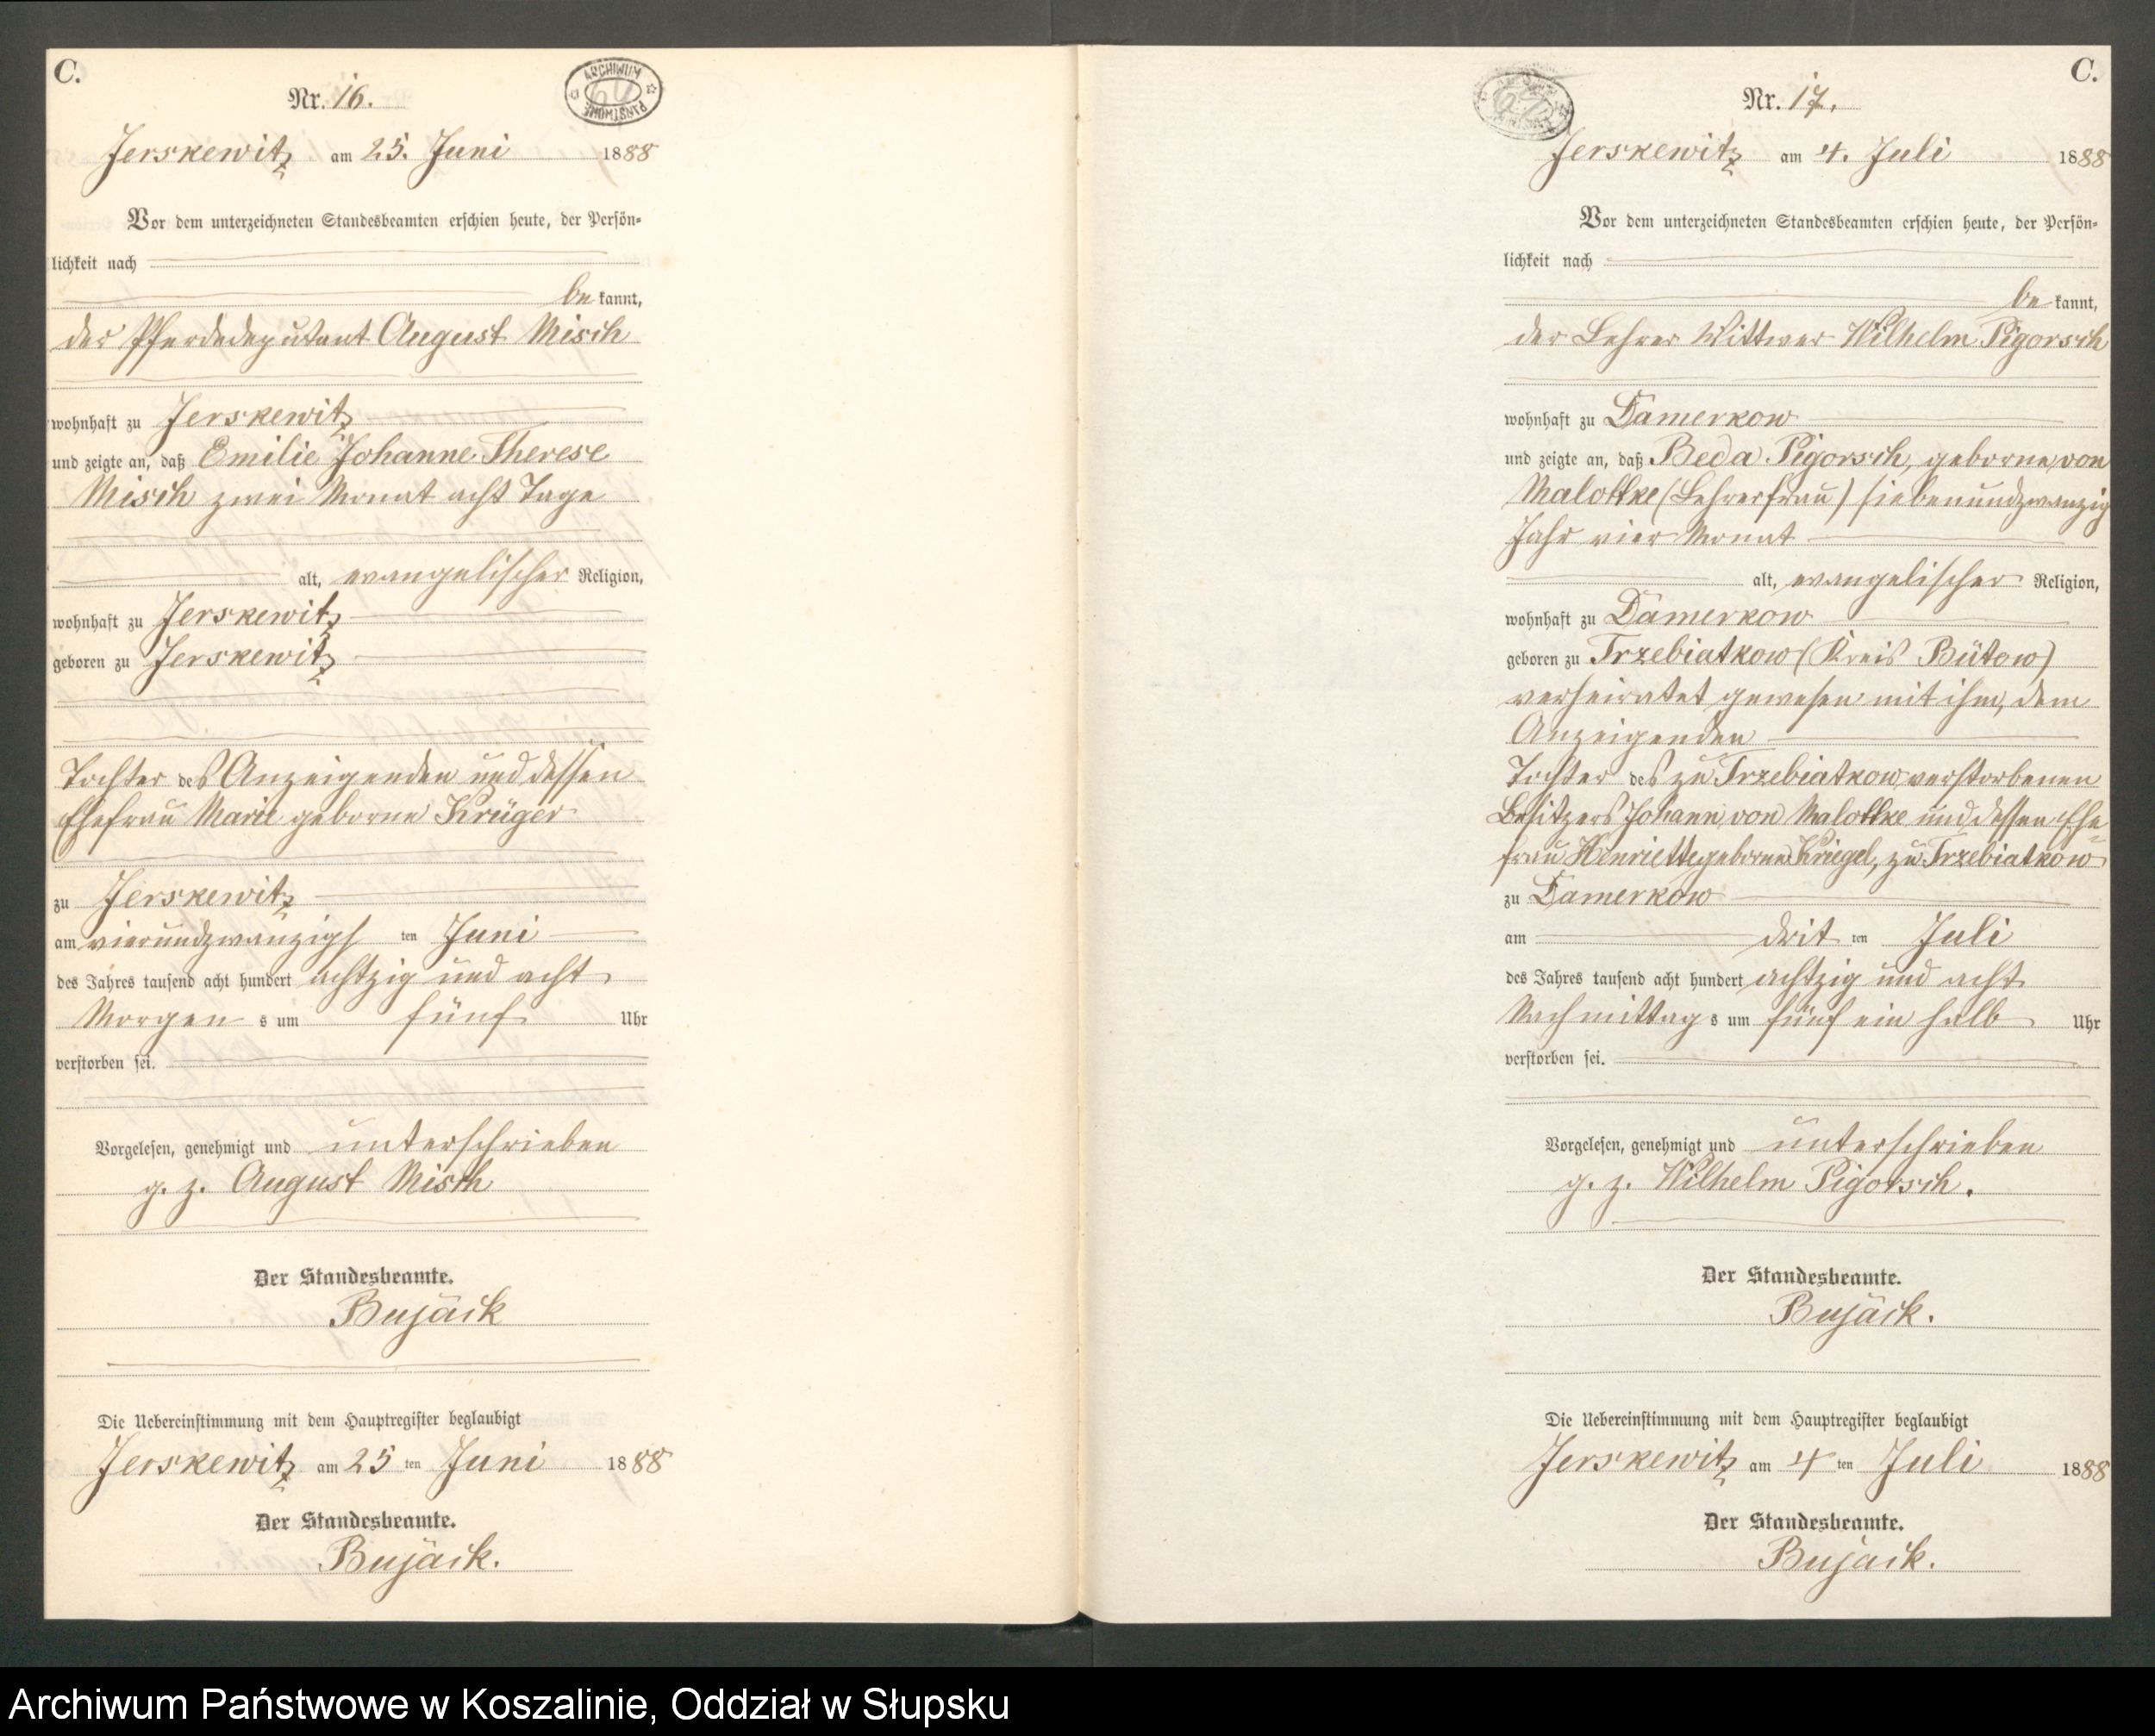 C.
Nr. 16.
ARCHIWUM PAŃSTWOWE
Jerskewitz am 25. Juni 1888
Vor dem unterzeichneten Standesbeamten erschien heute, der Persön-
lichkeit nach
be kannt,
der Pferdedeputant August Misch
wohnhaft zu Jerskewitz
und zeigte an, daß Emilie Johanne Therese
Misch zwei Monat acht Tage
alt, evangelischer Religion,
wohnhaft zu Jerskewitz
geboren zu Jerskewitz
Tochter des Anzeigenden und dessen
Ehefrau Marie geborne Krüger
zu Jerskewitz
am vierundzwanzigs ten Juni
des Jahres tausend acht hundert achtzig und acht
Morgen s um fünf Uhr
verstorben sei.
Vorgelesen, genehmigt und unterschrieben
g. z. August Misch
Der Standesbeamte.
Bujäck
Die Uebereinstimmung mit dem Hauptregister beglaubigt
Jerskewitz am 25 ten Juni 1888
Der Standesbeamte.
Bujäck.
C.
Nr. 17.
Jerskewitz am 4. Juli 1888
Vor dem unterzeichneten Standesbeamten erschien heute, der Persön-
lichkeit nach
be kannt,
der Lehrer Wittwer Wilhelm Pigorsch
wohnhaft zu Damerkow
und zeigte an, daß Beda Pigorsch, geborne von
Malottke (Lehrerfrau) siebenundzwanzig
Jahr vier Monat
alt, evangelischer Religion,
wohnhaft zu Damerkow
geboren zu Trzebiatkow (Kreis Bütow)
verheiratet gewesen mit ihm, dem
Anzeigenden
Tochter des zu Trzebiatkow verstorbenen
Besitzers Johann von Malottke und dessen Ehe
frau Henriette geborne Kriegel, zu Trzebiatkow
zu Damerkow
am drit ten Juli
des Jahres tausend acht hundert achtzig und acht
Nachmittag s um fünf ein halb Uhr
verstorben sei.
Vorgelesen, genehmigt und unterschrieben
g. z. Wilhelm Pigorsch.
Der Standesbeamte.
Bujäck.
Die Uebereinstimmung mit dem Hauptregister beglaubigt
Jerskewitz am 4 ten Juli 1888
Der Standesbeamte.
Bujäck.
Archiwum Państwowe w Koszalinie, Oddział w Słupsku